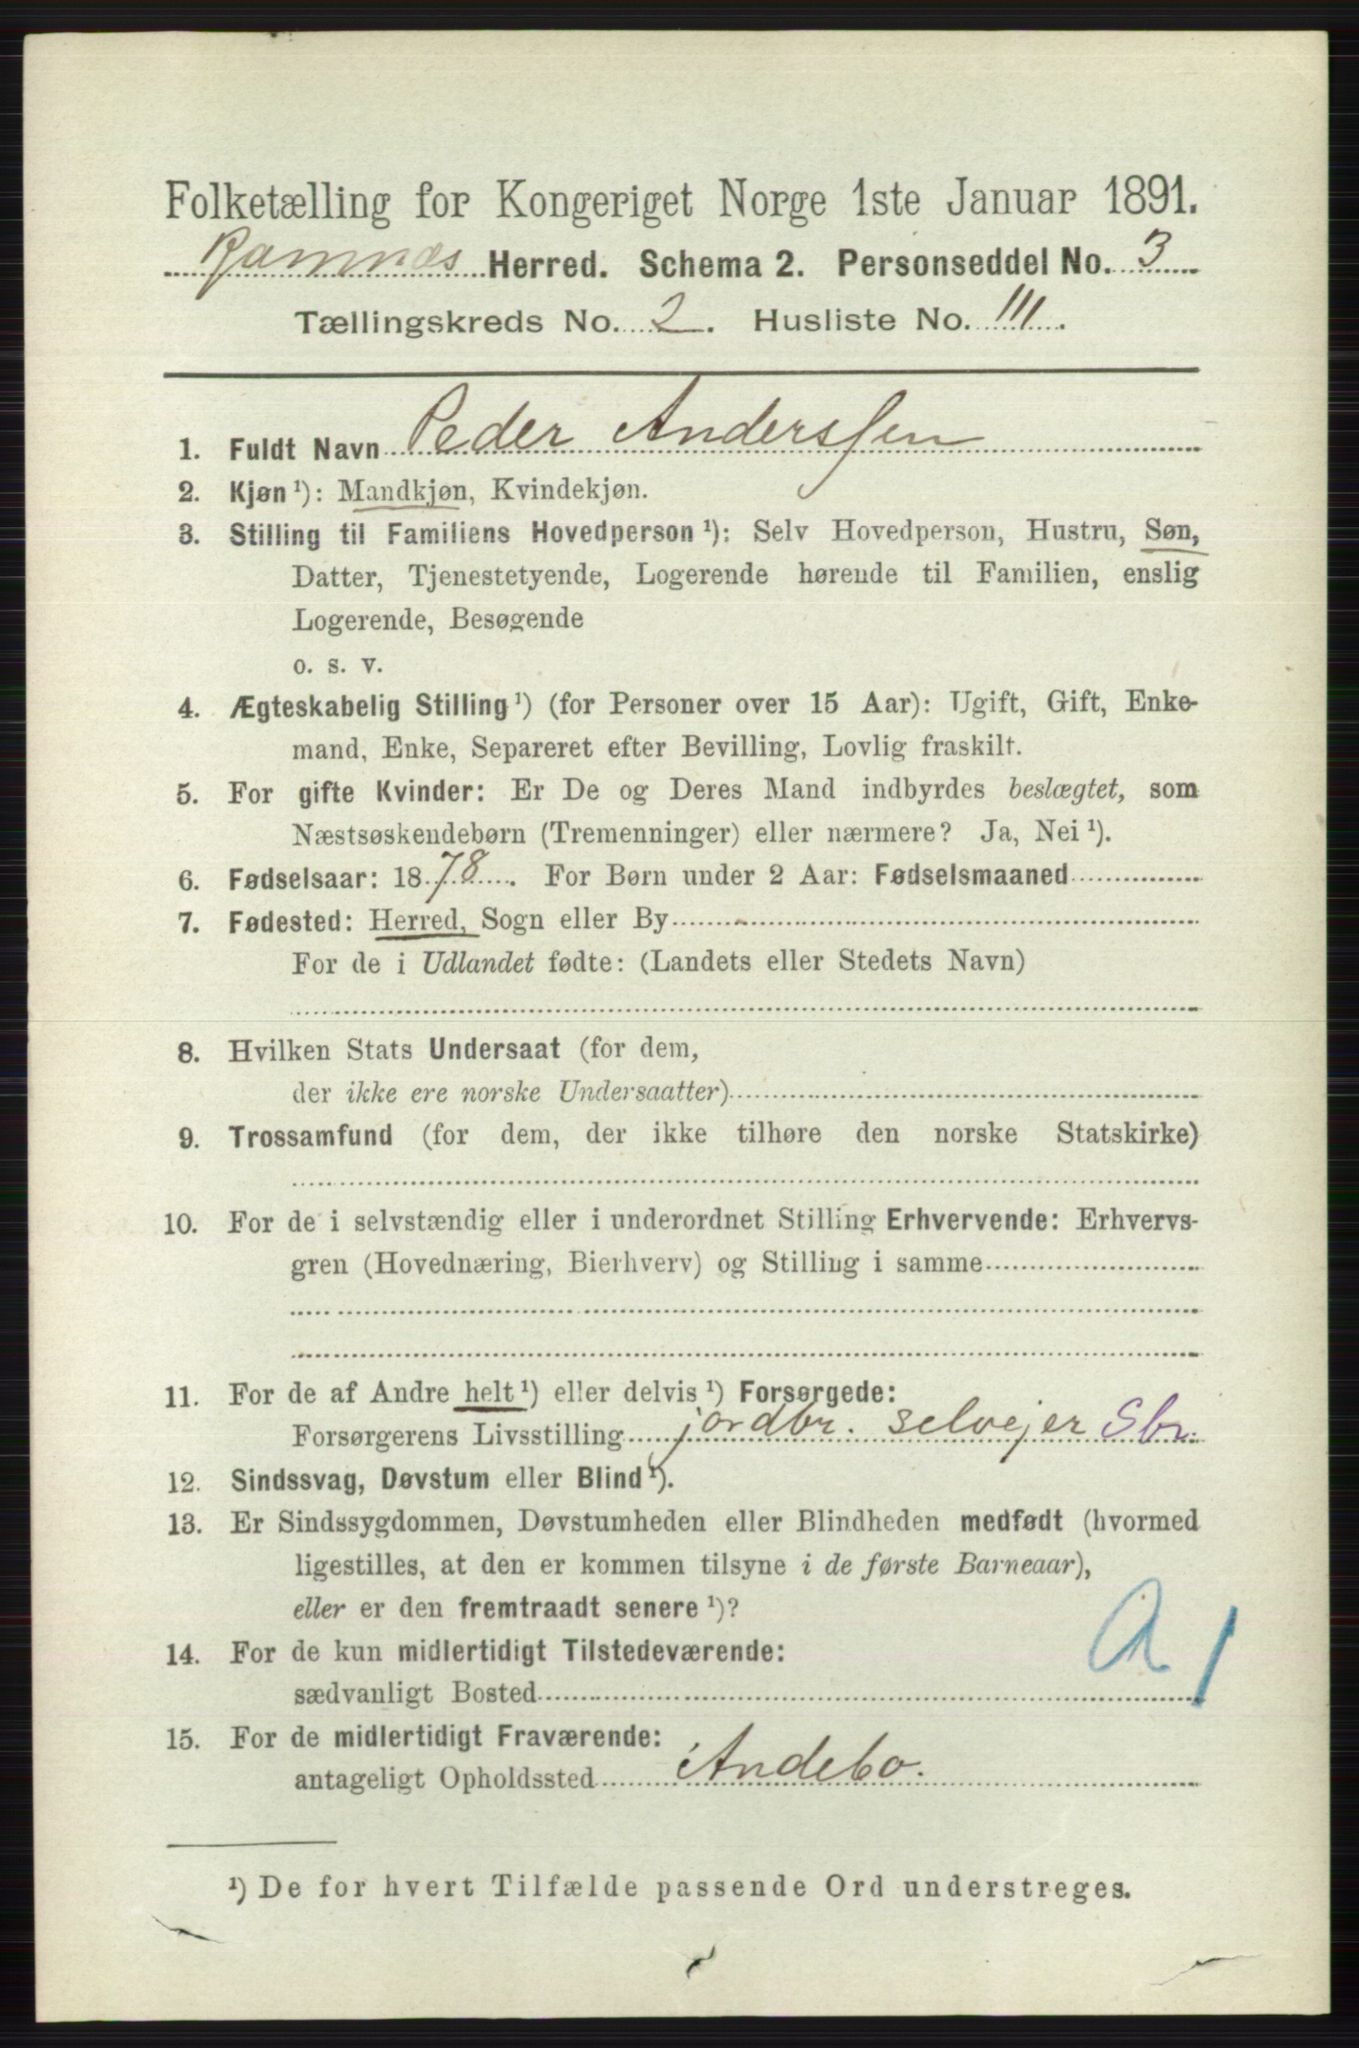 Folketælling for Kongeriget Norge 1ste Januar 1891.
Ramnæs Herred. Schema 2. Personseddel No. 3
Tællingskreds No. 2. Husliste No. 111.
1. Fuldt Navn Peder Anderssen
2. Kjøn ¹): Mandkjøn, Kvindekjøn.
3. Stilling til Familiens Hovedperson ¹): Selv Hovedperson, Hustru, Søn,
Datter, Tjenestetyende, Logerende hørende til Familien, enslig
Logerende, Besøgende
o. s. v.
4. Ægteskabelig Stilling ¹) (for Personer over 15 Aar): Ugift, Gift, Enke-
mand, Enke, Separeret efter Bevilling, Lovlig fraskilt.
5. For gifte Kvinder: Er De og Deres Mand indbyrdes beslægtet, som
Næstsøskendebørn (Tremenninger) eller nærmere? Ja, Nei ¹).
6. Fødselsaar: 1878. For Børn under 2 Aar: Fødselsmaaned
7. Fødested: Herred, Sogn eller By
For de i Udlandet fødte: (Landets eller Stedets Navn)
8. Hvilken Stats Undersaat (for dem,
der ikke ere norske Undersaatter)
9. Trossamfund (for dem, der ikke tilhøre den norske Statskirke)
10. For de i selvstændig eller i underordnet Stilling Erhvervende: Erhvervs-
gren (Hovednæring, Bierhverv) og Stilling i samme
11. For de af Andre helt ¹) eller delvis ¹) Forsørgede:
Forsørgerens Livsstilling jordbr. selvejer Sbr.
12. Sindssvag, Døvstum eller Blind ¹).
13. Er Sindssygdommen, Døvstumheden eller Blindheden medfødt (hvormed
ligestilles, at den er kommen tilsyne i de første Barneaar),
eller er den fremtraadt senere ¹)?
14. For de kun midlertidigt Tilstedeværende:
sædvanligt Bosted
A 1
15. For de midlertidigt Fraværende:
antageligt Opholdssted Andebo.
¹) De for hvert Tilfælde passende Ord understreges.